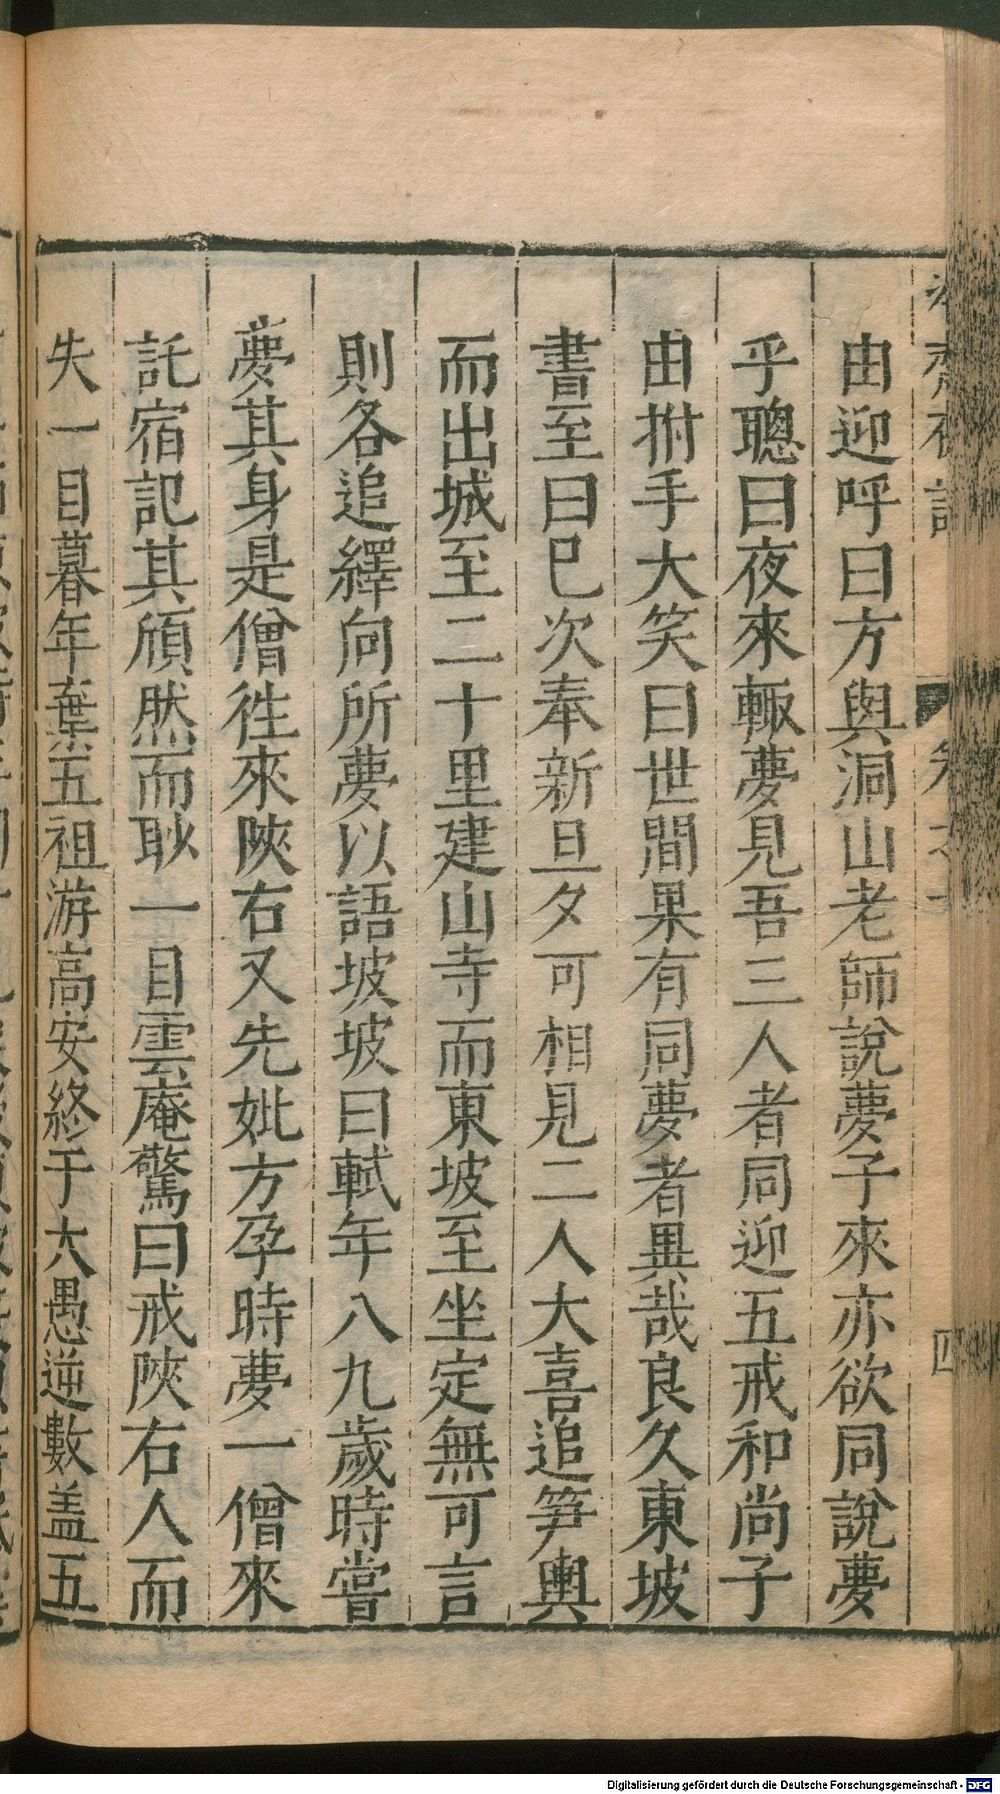 由迎呼曰方與洞山老師說夢子來亦欲同說夢
乎聰曰夜來輙夢見吾三人者同迎五戒和尚子
由拊手大笑曰世間果有同夢者異哉良久東坡
書至曰已次奉新旦夕可相見二人大喜追笋輿
而出城至二十里建山寺而東坡至坐定無可言
則各追繹向所夢以語坡坡曰軾年八九歲時嘗
夢其身是僧徃來陝右又先妣方孕時夢一僧來
託宿記其頎然而眇一目雲庵驚曰戒陝右人而
失一目暮年棄五祖游高安終于大愚逆數盖五
四
Digitalisierung gefördert durch die Deutsche Forschungsgemeinschaft - DFG